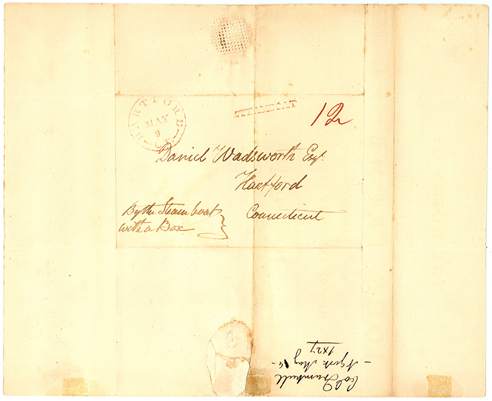 HARTFORD
MAY
9
CT.
STEAMBOAT
12
Daniel Wadsworth Esq.
Hartford
Connecticut
By the Steam boat
with a Box
Col Trumbull
- N york May
1827